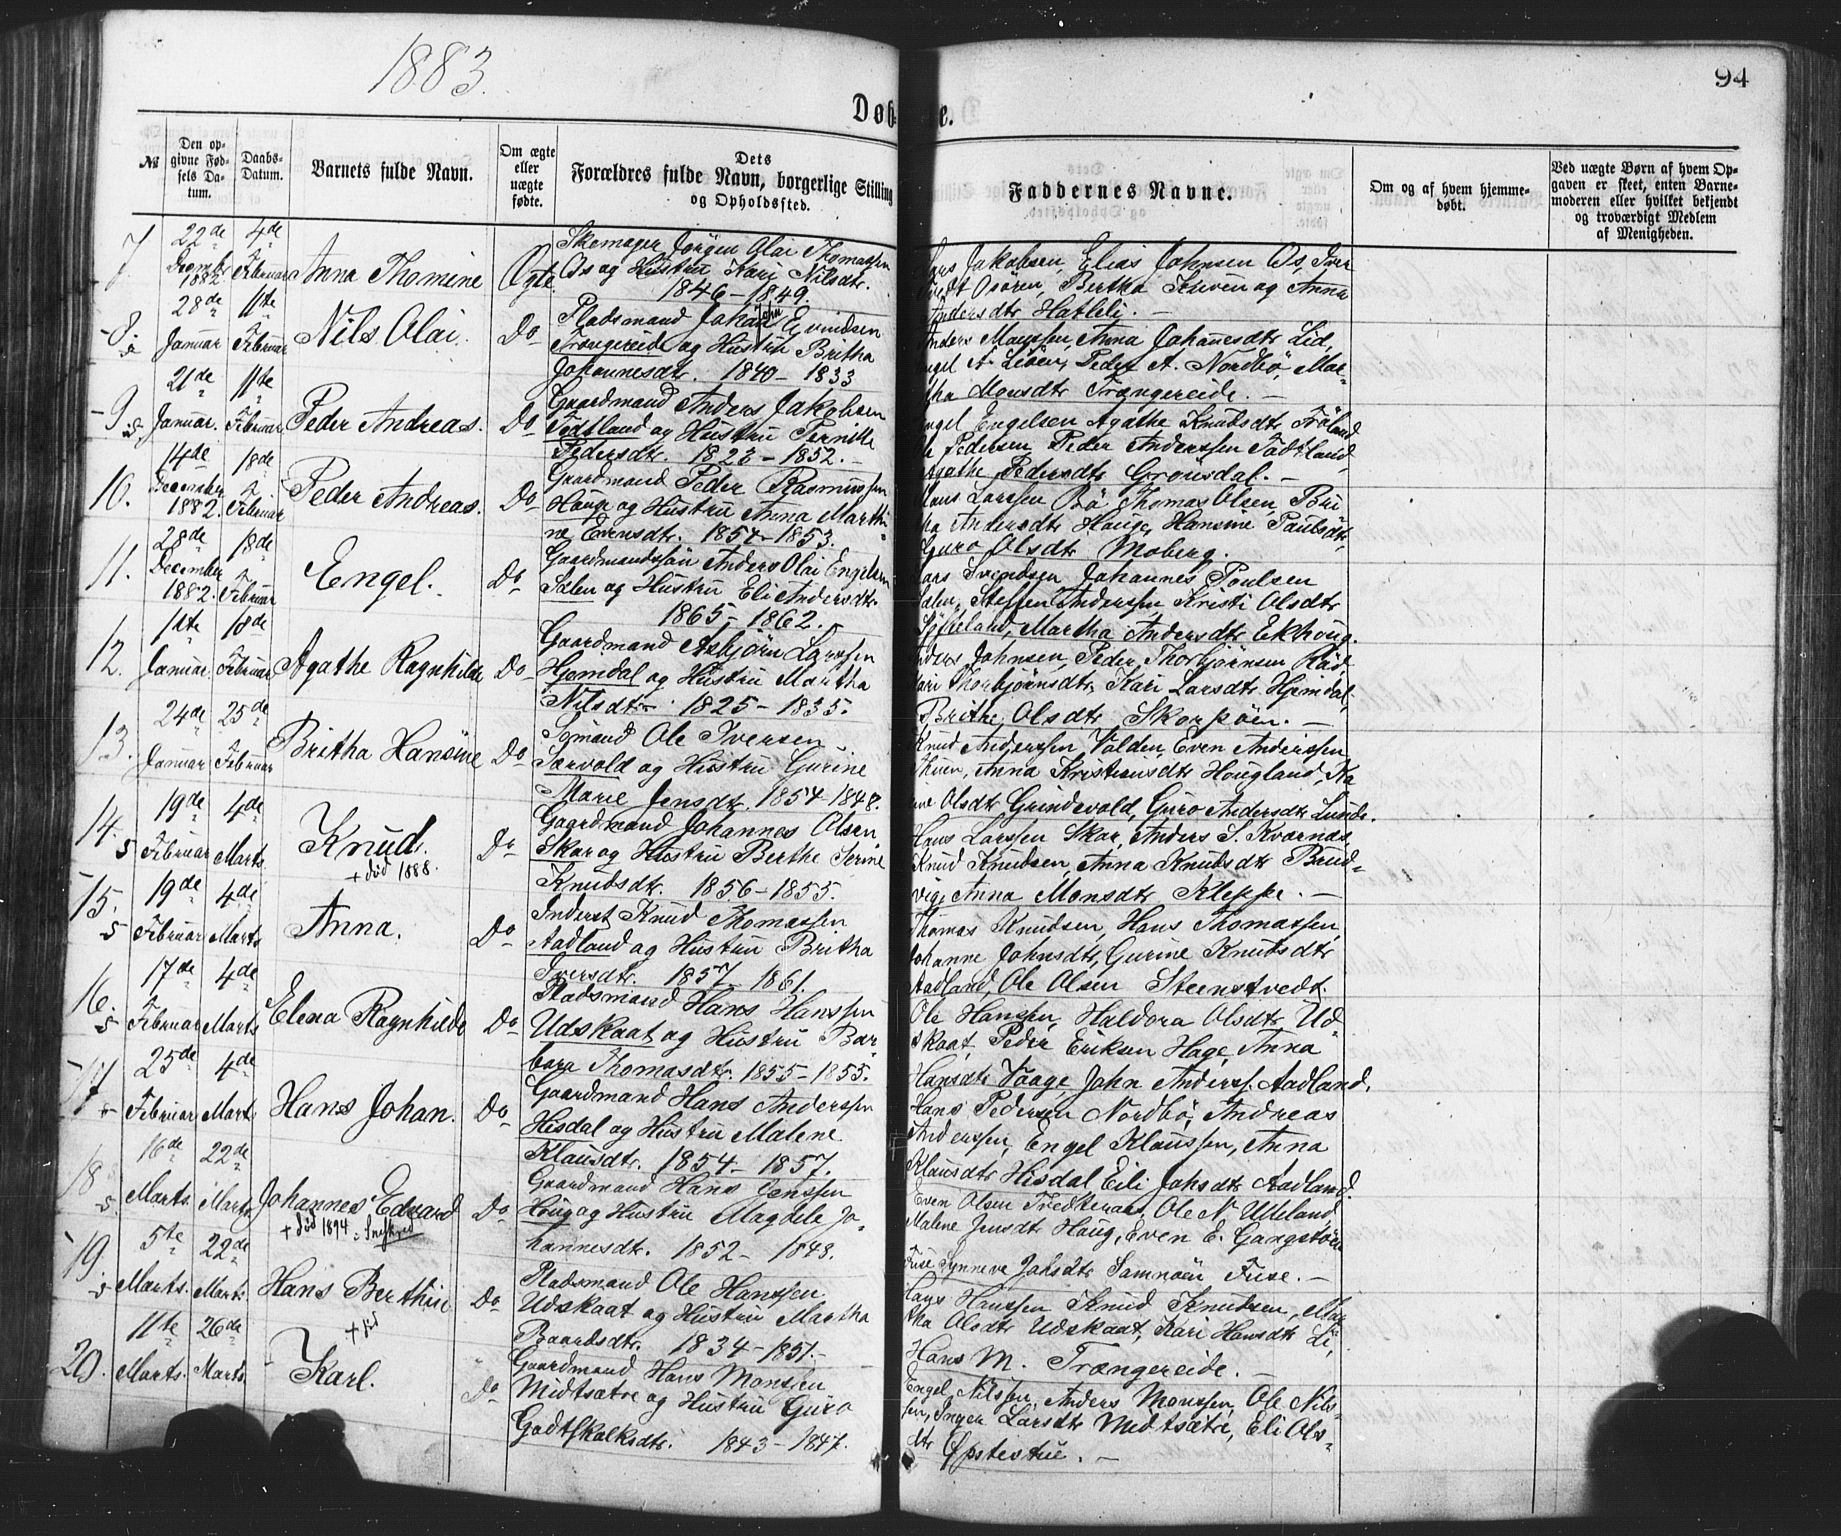 1883.
94
Døbte.
№
Den opgivne Fødsels Datum.
Daabs-Datum.
Barnets fulde Navn.
Om ægte eller uægte fødte.
Dets Forældres fulde Navn, borgerlige Stilling og Opholdssted.
Faddernes Navne.
Om og af hvem hjemmedøbt.
Ved uægte Børn af hvem Opgaven er skeet, enten Barnemoderen eller hvilket bekjendt og troværdigt Medlem af Menigheden.
7 22de Decembr 1882 4de Februar Anna Thomine Ægte
Skomager Jørgen Olai Thomassen
Os og Hustru Kari Nilsdtr.
1846 - 1849.
Jakobsen, Elias Johnsen Os, Iver
Osören, Bertha Kuven og Anna
Andersdtr Hatleli. -
8. 28de Januar 11te Februar Nils Olai. Do
Pladsmand Johan Eivindsen
Trængereide og Hustru Britha
Johannesdtr. 1840 - 1833
Anders Monssen, Anna Johannesdtr Lid,
Engel A. Liöen, Peder A. Nordbö, Mar-
tha Monsdtr Trængereide. -
9 21de Januar. 11te Februar Peder Andreas. Do
Gaardmand Anders Jakobsen
Tødtland og Hustru Pernille
Pedersdtr. 1823 - 1852. -
Engel Engelsen, Agathe Knudsdtr Fröland
Pedersen, Peder Anderssen
Agathe Pedersdtr Grönsdal. -
10. 14de December 1882. 18de Februar Peder Andreas. Do
Gaardmand Peder Rasmussen
Hauge og Hustru Anna Marthi-
ne Evensdtr. 1857 - 1853.
Hans Larssen Bö, Thomas Olsen, Bri-
tha Andersdtr Hauge, Hansine Paulsdtr,
Guro Olsdtr Moberg.
11. 28de December 1882. 18de Februar Engel. Do
Gaardmandssön Anders Olai Engelsen
Salen og Hustru Eli Andersdtr.
1865 - 1862. -
Lars Svendsen, Johannes Poulsen
Salen, Steffen Anderssen, Kristi Olsdtr
Martha Andersdtr Ekhoug.
12. 11te Januar. 18de Februar Agathe Ragnhilde Do
Gaardmand Asbjörn Larssen
Hjemdal og Hustru Martha
Nilsdtr. 1825 - 1835.
Anders Johnsen, Peder Thorbjörnsen Röd,
Kari Thorbjörnsdtr, Kari Larsdtr Hjemdal,
Brithe Olsdtr Skorpöen. -
13. 24de Januar 25de Februar Britha Hansine Do
Sömand Ole Iversen
Sörvold og Hustru Gurine
Marie Jensdtr. 1854 - 1848.
Knud Anderssen Valden, Even Anderssen
Kuven, Anna Kristiansdtr Hougland, Ka-
rine Olsdtr Grindevold, Guro Andersdtr Lunde.
14. 19de Februar 4de Marts Knud. + död 1888. Do
Gaardmand Johannes Olsen
Skar og Hustru Berthe Serine
Knudsdtr. 1856 - 1855.
Hans Larssen Skar, Anders S. Kvernæs,
Knud Knudsen, Anna Knudsdtr Brud-
vig, Anna Monsdtr Kleppe. -
15. 19de Februar 4de Marts. Anna. Do
Inderst Knud Thomassen
Aadland og Hustru Britha
Iversdtr. 1857 - 1861.
Thomas Knudsen, Hans Thomassen,
Johanne Johnsdtr, Gurine Knudsdtr
Aadland, Ole Olsen Steenstvedt.
16. 17de Februar 4de Marts Elena Ragnhilde Do
Pladsmand Hans Hanssen
Udskaat og Hustru Bar-
bara Thomasdtr. 1855 - 1855.
Ole Hansen, Haldora Olsdtr Ud-
skaat, Peder Eriksen Hage, Anna
Hansdtr Vaage, John Anderss. Aadland.
17 25de Februar 4de Marts Hans Johan. Do
Gaardmand Hans Anderssen
Hisdal og Hustru Malene
Klausdtr. 1854 - 1857.
Hans Pedersen Nordbö, Andreas
Anderssen, Engel Klaussen, Anna
Klausdtr Hisdal, Eili Johsdtr Aadland.
18 16de Marts. 22de Marts Johannes Edvard + död 1894 Do
Gaardmand Hans Jenssen
Houg og Hustru Magdele Jo-
hannesdtr. 1852 - 1848.
Even Olsen Ole N. Uleland
Malene Jensdtr Haug, Even E. Gangstöen
Fuse, Synneve Johsdtr Samnöen Fuse. -
19. 5te Marts. 22de Marts. Hans Berthin + död Do
Pladsmand Ole Hanssen
Udskaat og Hustru Martha
Baardsdtr. 1834 - 1851. -
Hans Hanssen, Knud Knudsen, Mar-
tha Olsdtr Udskaat, Kari Hansdtr Li,
Hans M. Trængereide. -
20. 11te Marts. 26de Marts. Karl. Do
Gaardmand Hans Monssen
Midtsætre og Hustru Guro
Godtskalksdtr. 1843 - 1847.
Engel Nilssen, Anders Monssen, Ole Nils-
sen, Inger Larsdtr Midtsætre, Eli Ols-
dtr Öpstestue. -